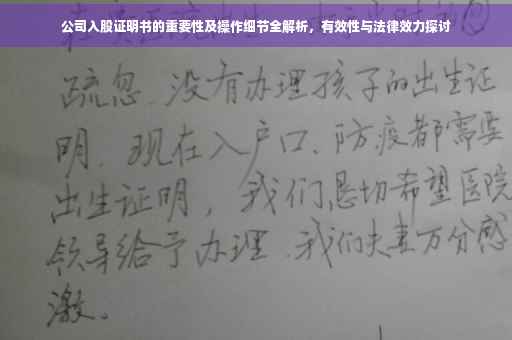 公司入股证明书的重要性及操作细节全解析，有效性与法律效力探讨
疏忽、没有办理孩子的出生证
明、现在入户口、防疫都需要
出生证明，我们恳切希望医院
领导给予办理、我们夫妻万分感
激。